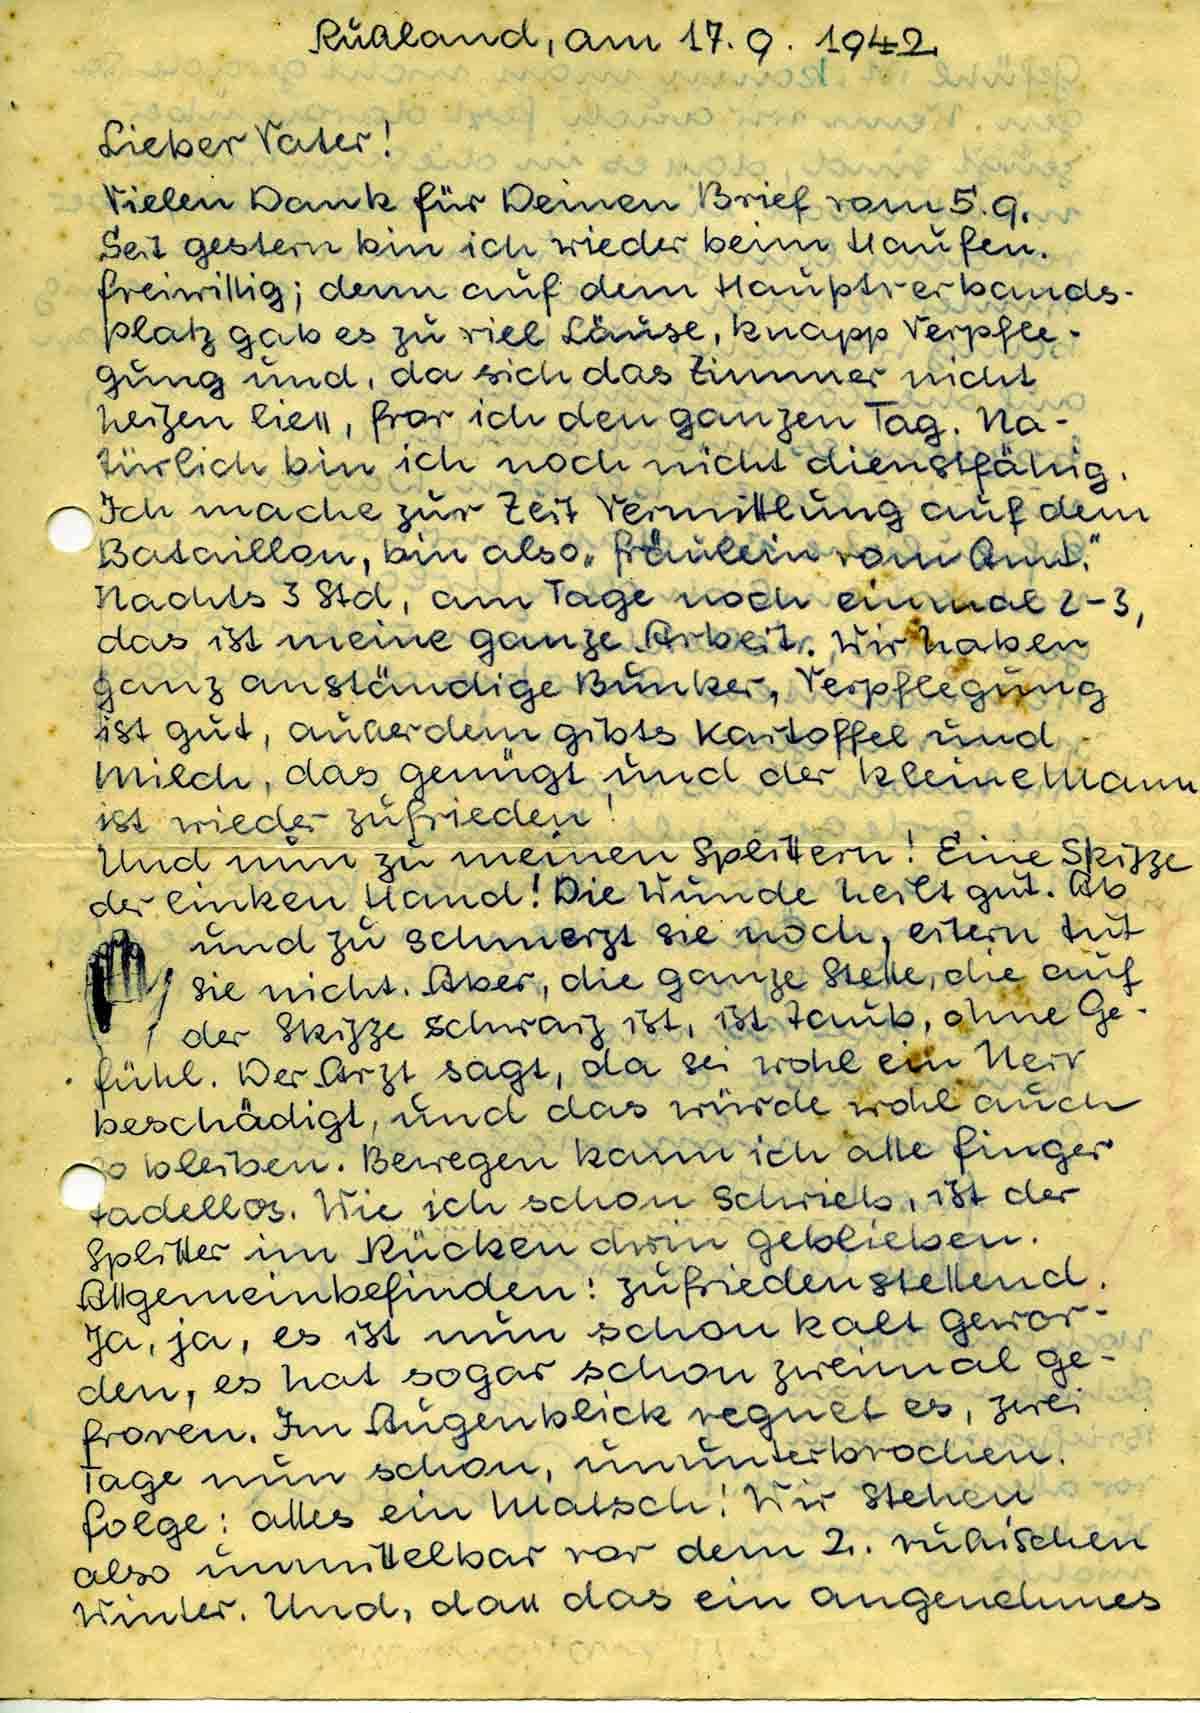 Rußland, am 17.9.1942.
Lieber Vater!
Vielen Dank für Deinen Brief vom 5.9.
Seit gestern bin ich wieder beim Haufen.
freiwillig; denn auf dem Hauptverbands-
platz gab es zu viel Läuse, knapp Verpfle-
gung und, da sich das Zimmer nicht
heizen ließ, fror ich den ganzen Tag. Na-
türlich bin ich noch nicht dienstfähig.
Ich mache zur Zeit Vermittlung auf dem
Bataillon, bin also „Fräulein vom Amt."
Nachts 3 Std, am Tage noch einmal 2-3,
das ist meine ganze Arbeit. Wir haben
ganz anständige Bunker, Verpflegung
ist gut, außerdem gibts Kartoffel und
Milch, das genügt und der kleine Mann
ist wieder zufrieden!
Und nun zu meinen Splittern! Eine Skizze
der linken Hand! Die Wunde heilt gut. Ab
und zu schmerzt sie noch, eitern tut
sie nicht. Aber, die ganze Stelle, die auf
der Skizze schwarz ist, ist taub, ohne Ge-
fühl. Der Arzt sagt, da sei wohl ein Nerv
beschädigt, und das würde wohl auch
so bleiben. Bewegen kann ich alle Finger
tadellos. Wie ich schon schrieb, ist der
Splitter im Rücken drin geblieben.
Allgemeinbefinden: zufriedenstellend.
Ja, ja, es ist nun schon kalt gewor-
den, es hat sogar schon zweimal ge-
froren. Im Augenblick regnet es, zwei
Tage nun schon, ununterbrochen.
Folge: alles ein Matsch! Wir stehen
also unmittelbar vor dem 2. rußischen
Winter. Und, daß das ein angenehmes